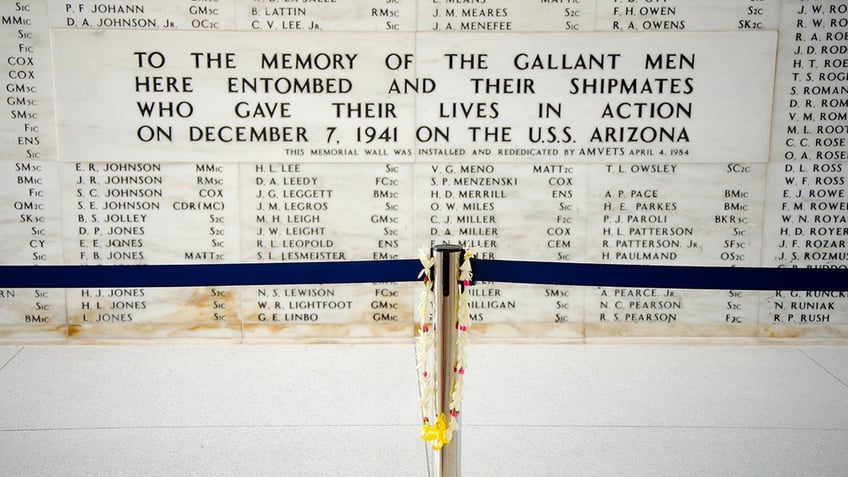 P. F JOHANN GM3C B. LATTIN RM3C J. M. MEARES S2C F. H. OWEN S2C
MM1C D. A. JOHNSON, JR. OC2C C. V. LEE, JR. S1C J. A. MENEFEE S1C R. A. OWENS SK2C
TO THE MEMORY OF THE GALLANT MEN
HERE ENTOMBED AND THEIR SHIPMATES
WHO GAVE THEIR LIVES IN ACTION
ON DECEMBER 7, 1941 ON THE U.S.S. ARIZONA
THIS MEMORIAL WALL WAS INSTALLED AND REDEDICATED BY AMVETS APRIL 4, 1984
S1C
F1C
COX
COX
GM3C
GM3C
SM3C
F1C
ENS
S1C
SM3C E. R. JOHNSON MM1C H. L. LEE S1C V. G. MENO MATT2C T. L. OWSLEY SC2C D. L. ROSS
BM1C J. R. JOHNSON RM3C D. A. LEEDY FC2C S. P. MENZENSKI COX W. F. ROSS
F1C S. C. JOHNSON COX J. G. LEGGETT BM2C H. D. MERRILL ENS A. P. PAGE BM1C E. J. ROWE
QM2C S. E. JOHNSON CDR(MC) J. M. LEGROS S1C O. W. MILES S1C H. E. PARKES BM1C F. M. ROWE
SK3C B. S. JOLLEY S2C M. H. LEIGH GM3C C. J. MILLER F2C P. J. PAROLI BKR3C
S1C D. P. JONES S1C J. W. LEIGHT S2C D. A. MILLER COX H. L. PATTERSON S1C
CY E. E. JONES S1C R. L. LEOPOLD ENS MILLER CEM R. PATTERSON, JR. SF3C
S1C F. B. JONES MATT2C S. L. LESMEISTER EM3C H. PAULMAND OS2C
S1C H. J. JONES S2C N. S. LEWISON FC3C MILLER SM3C A. PEARCE, JR. S1C
S1C H. L. JONES S1C W. R. LIGHTFOOT GM3C S1C N. C. PEARSON S2C N. RUNIAK
BM1C L. JONES S1C G. E. LINBO GM1C S1C R. S. PEARSON F2C R. P. RUSH